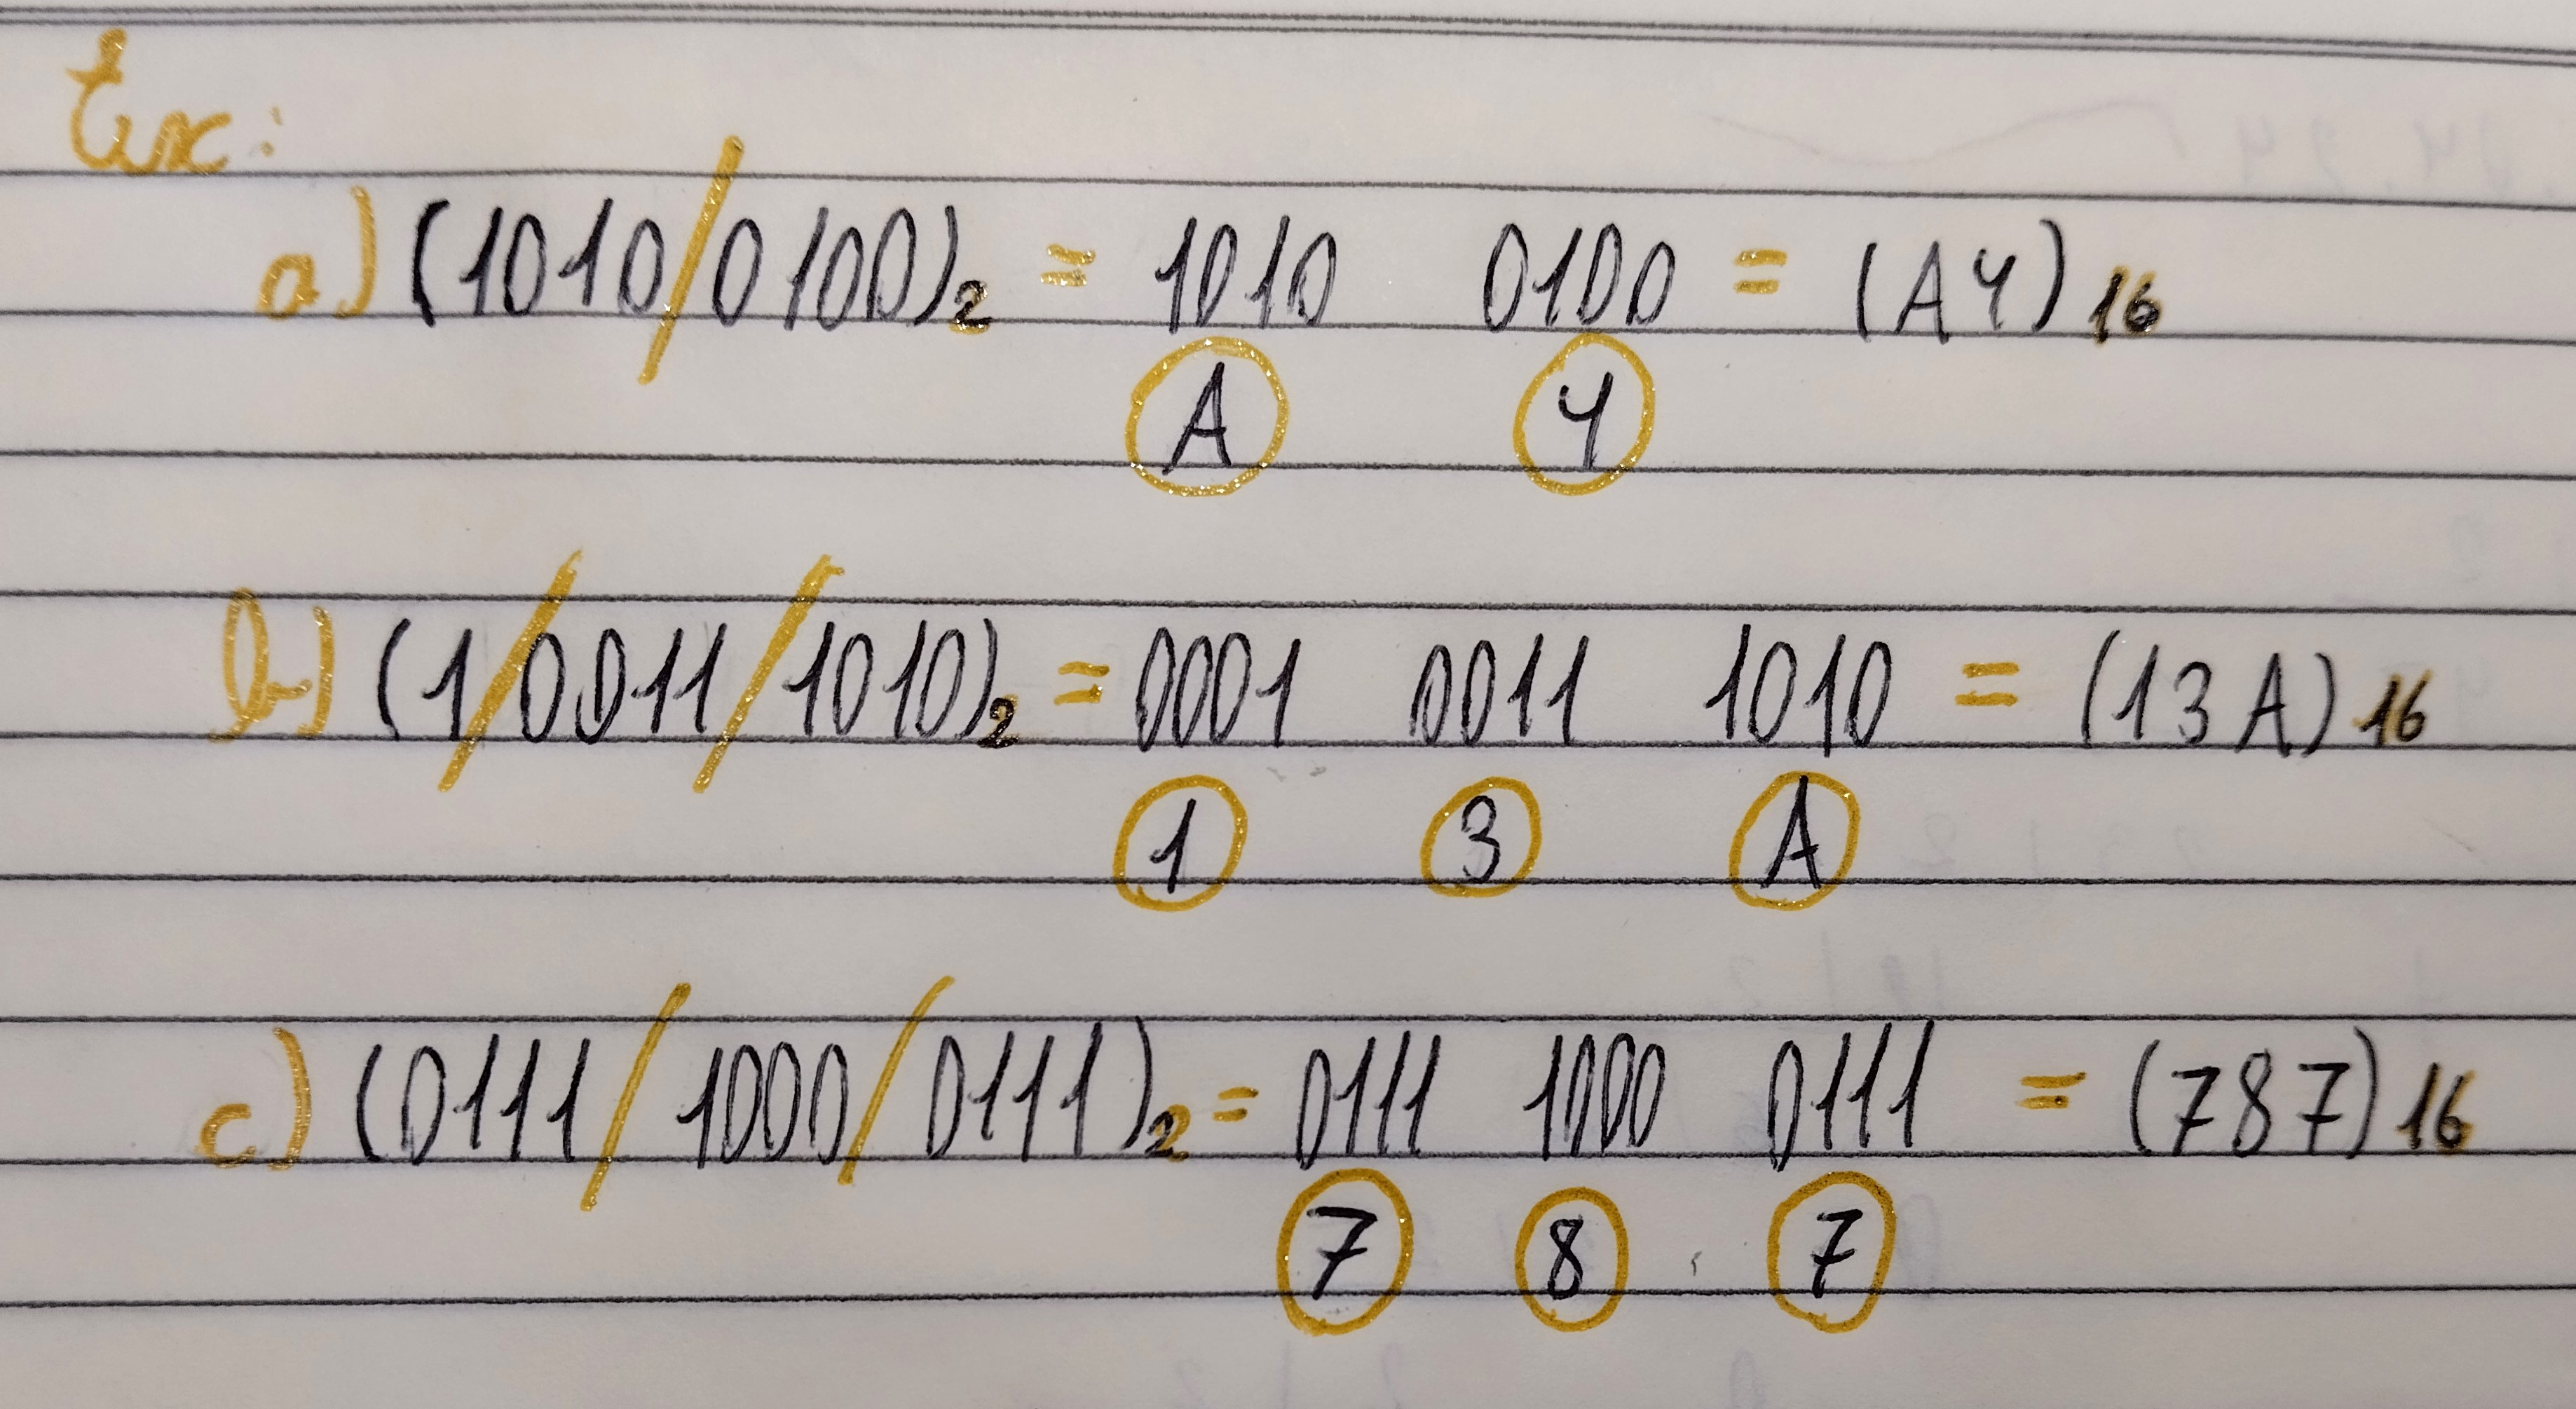 Ex:
a) (1010/0100)₂ = 1010 0100 = (A4)₁₆
A 4
b) (1/0011/1010)₂ = 0001 0011 1010 = (13A)₁₆
1 3 A
c) (0111/1000/0111)₂ = 0111 1000 0111 = (787)₁₆
7 8 7